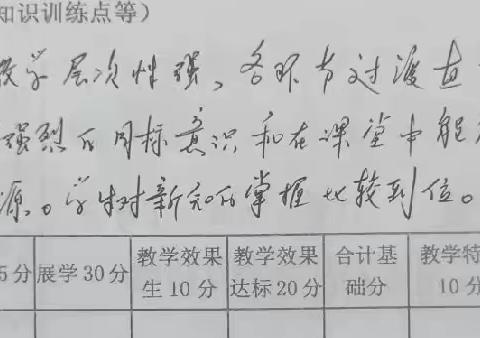 知识训练点等）
教学层次性强、各环节过渡直
强烈的目标意识和在课堂中能
源。学生对新知的掌握比较到位。
5分 展学30分 教学效果 教学效果 合计基 教学特
生10分 达标20分 础分 10分